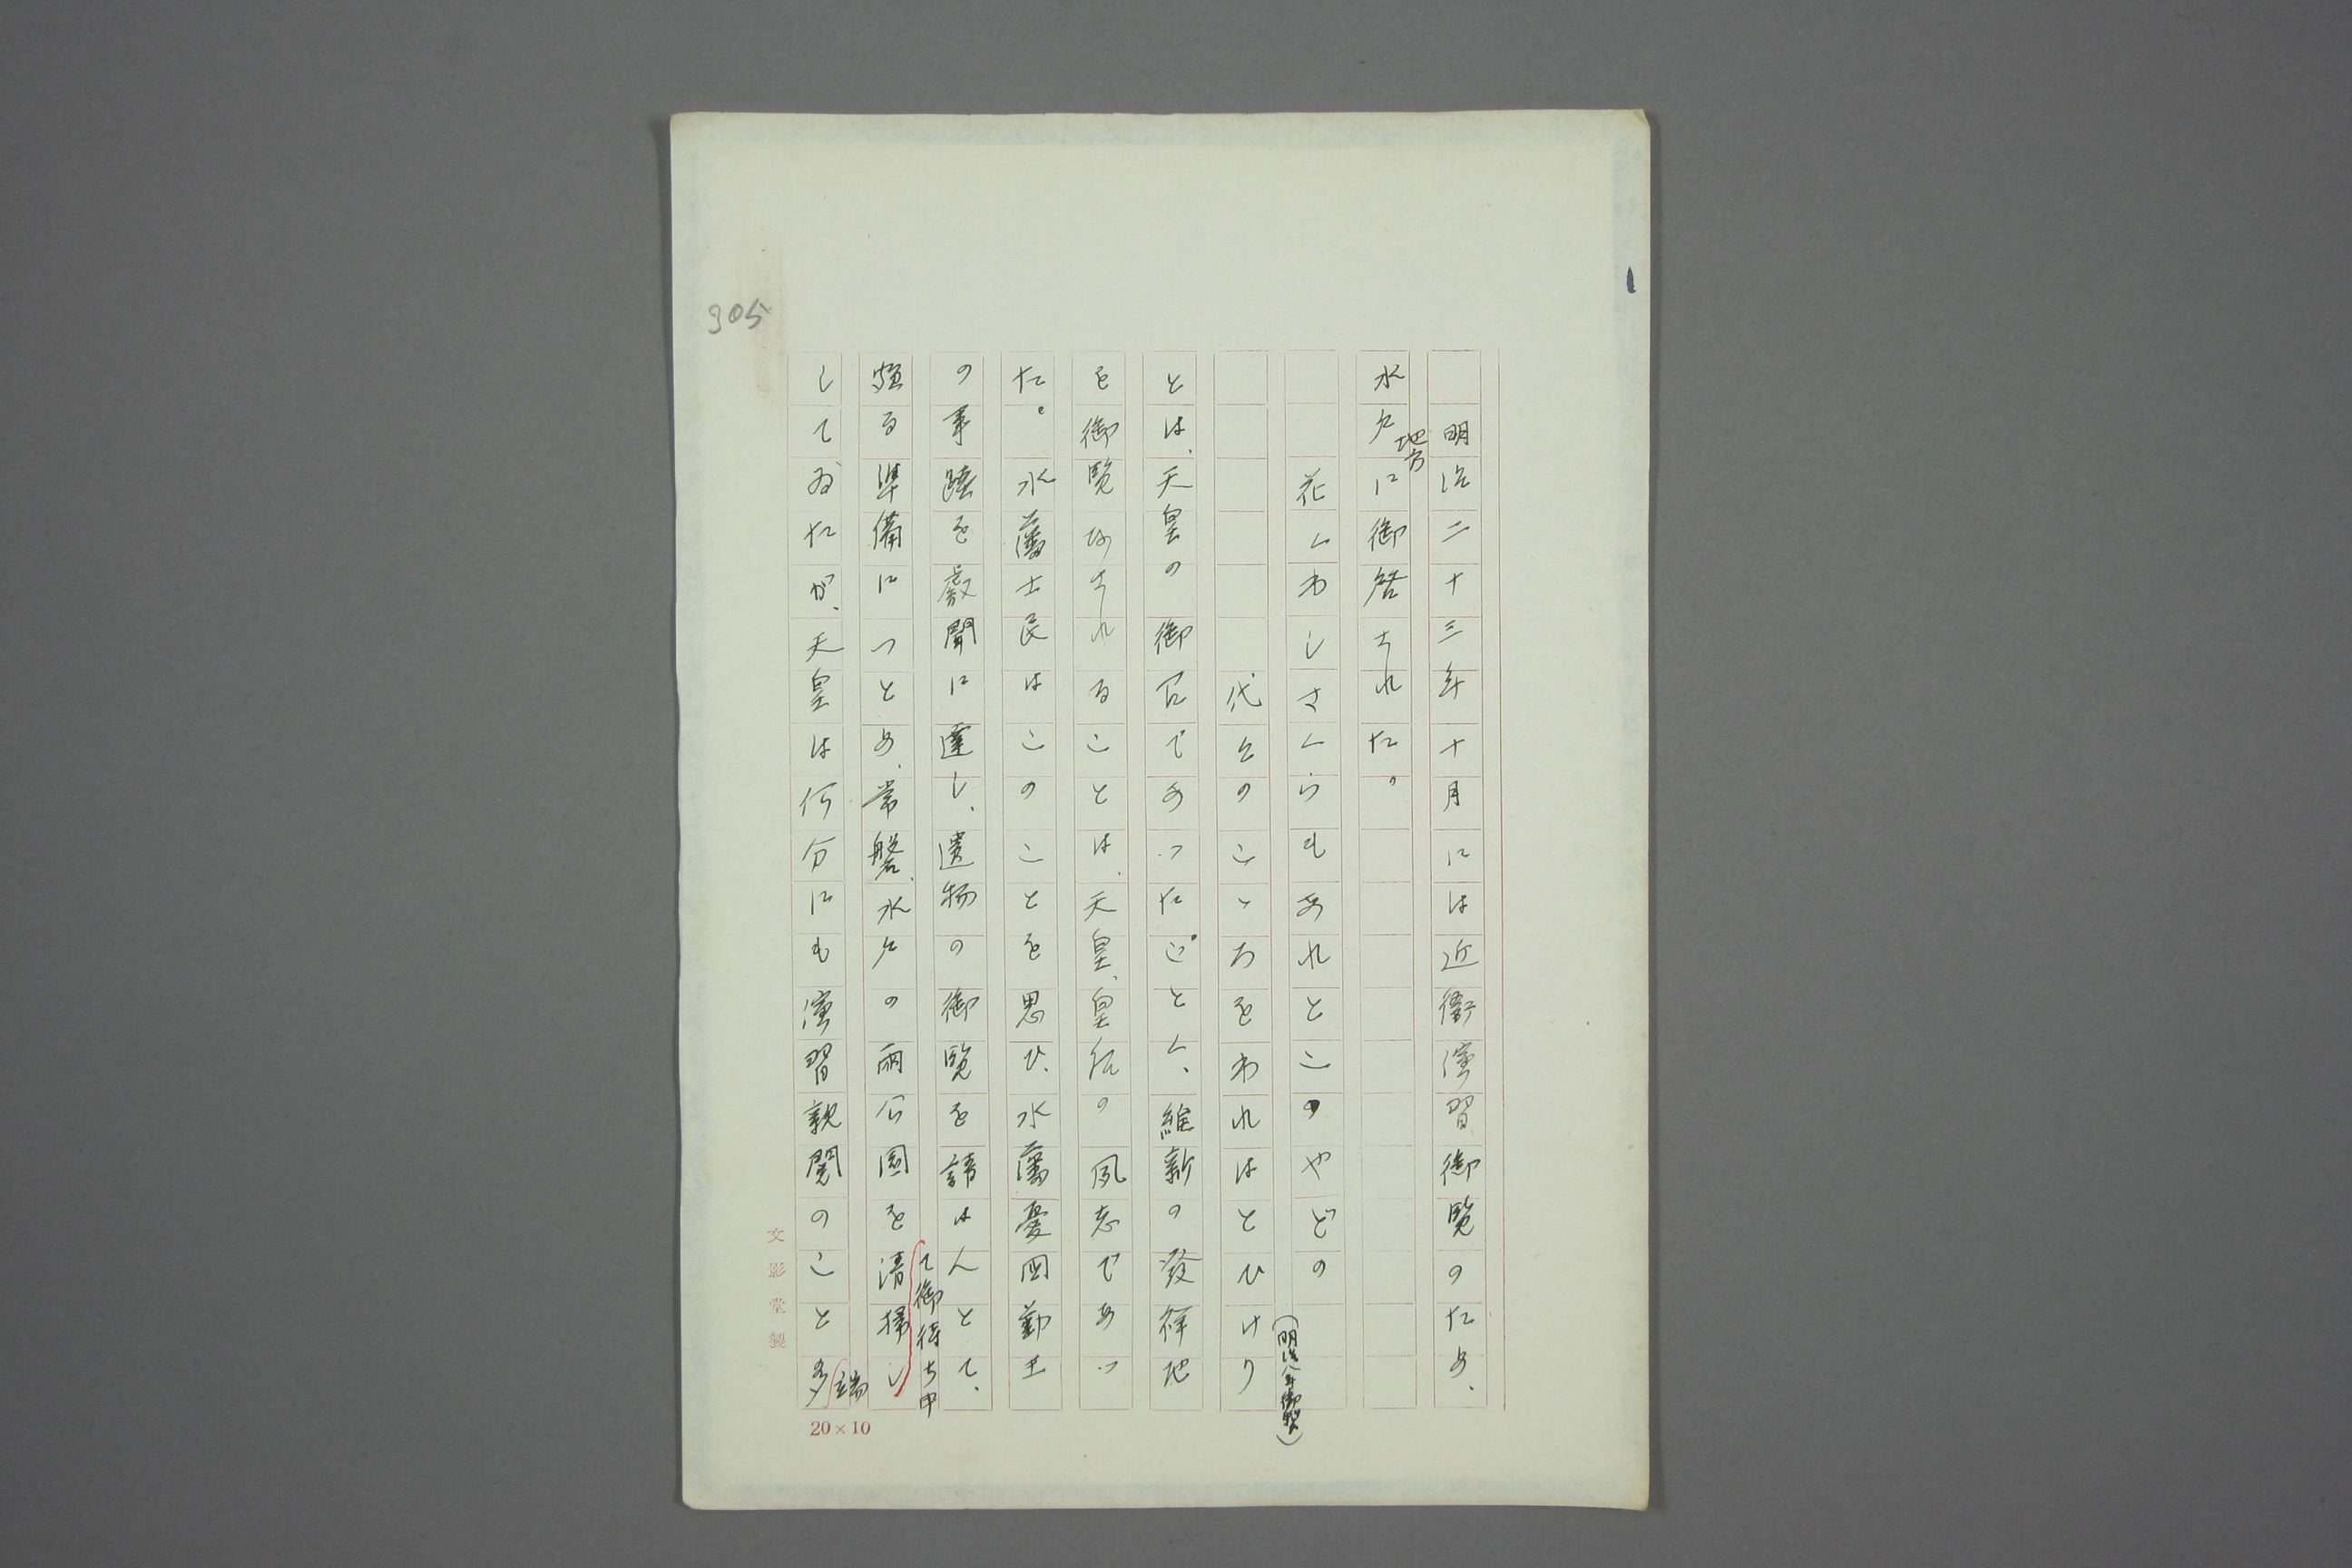 明治二十三年十月には近衞演習御覽のため、
水戸地方に御啓された。
花ぐわしさくらもあれとこのやどの
代々のこゝろをわれはとひけり
(明治八年御製)
とは、天皇の御召であつた。ごとく、維新の發祥地
を御覽なされることは、天皇、皇后の夙志であつ
た。水藩士民はこのことを思ひ、水藩憂囯勤王
の事蹟を叡聞に達し、遺物の御覽を請はんとて、
頻る準備につとめ、常磐、水戸の兩公園を清掃し
て御待ち申
してゐたが、天皇は何分にも演習親閲のこと多端
305
文影堂製
20×10